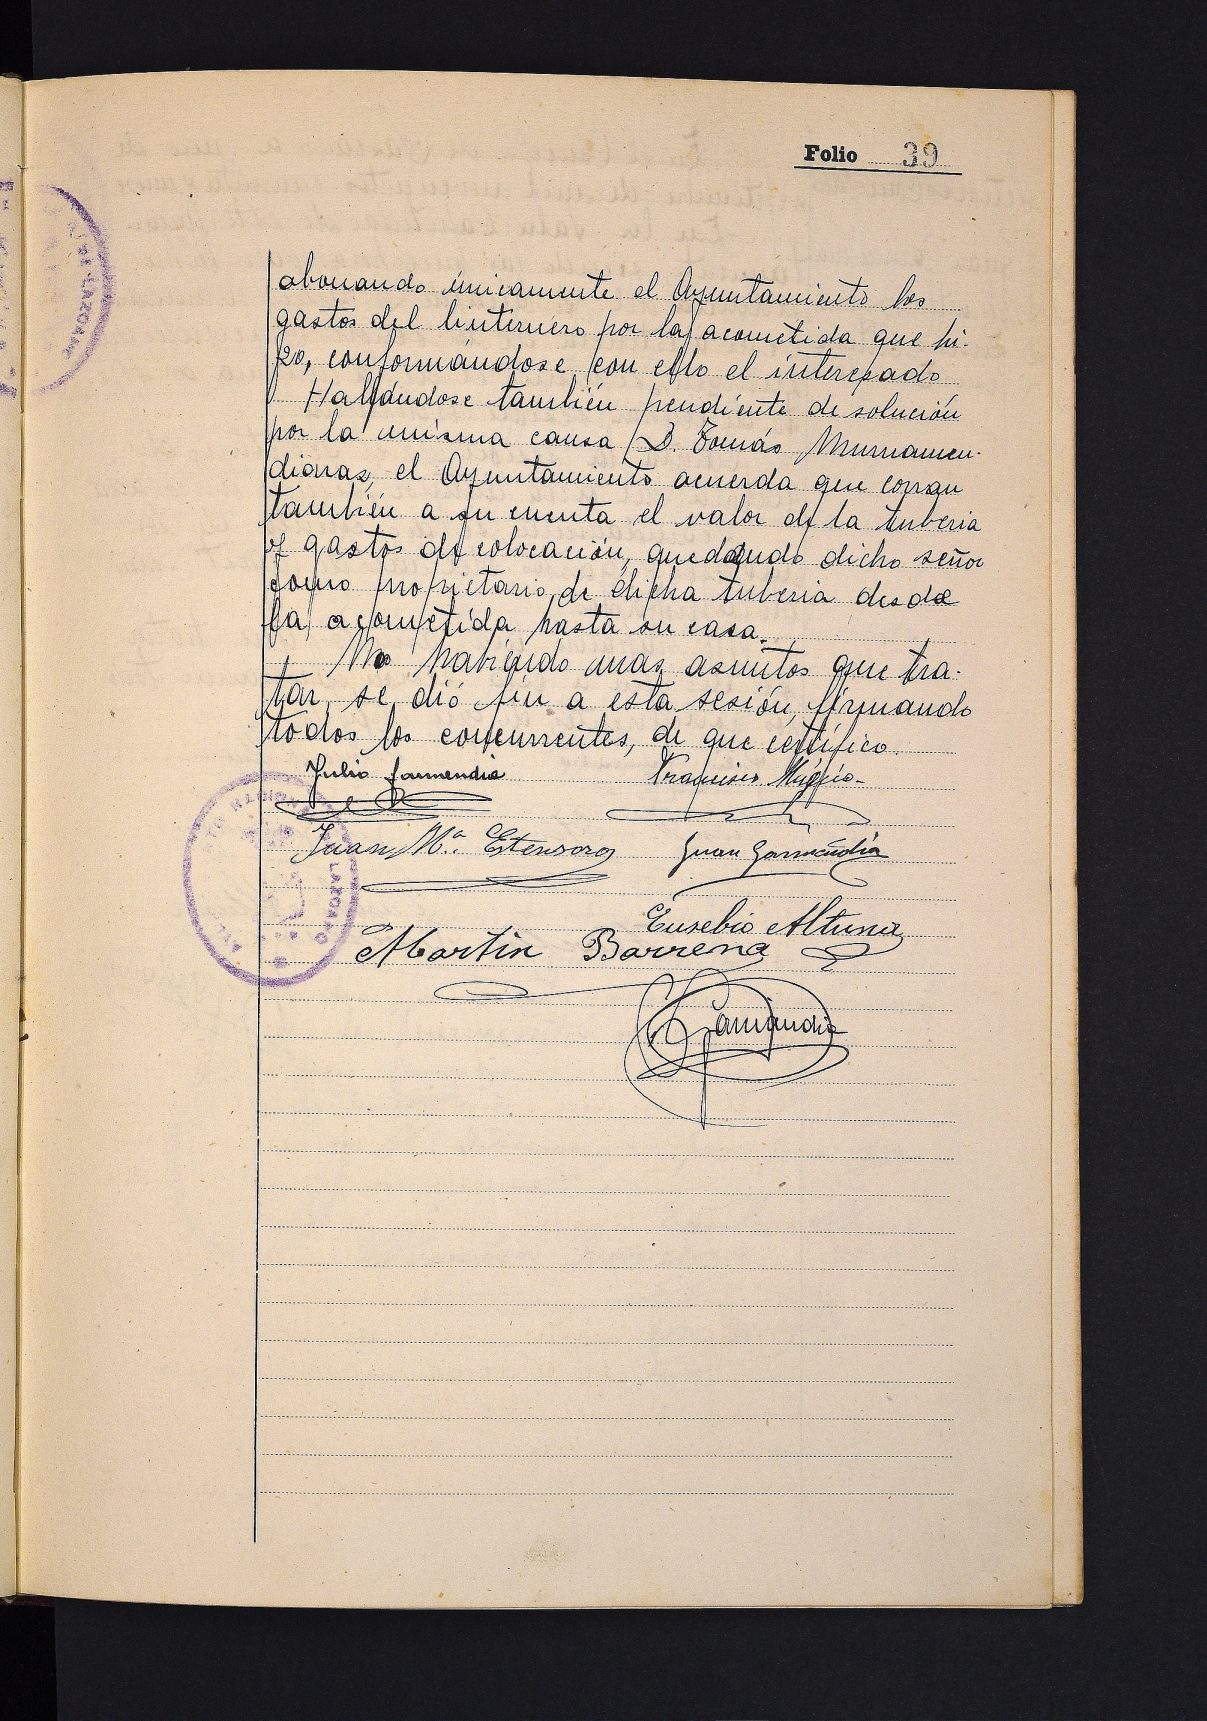 Folio 39
abonando únicamente el Ayuntamiento los
gastos del linternero por la acometida que hi-
zo, conformándose con ello el interesado
Hallándose también pendiente de solución
por la misma causa D. Tomás Murnamen-
diaraz, el Ayuntamiento acuerda que corran
también a su cuenta el valor de la tuberia
y gastos de colocación, quedando dicho señor
como propietario de dicha tuberia desde
la acometida hasta su casa.
No habiendo mas asuntos que tra-
tar, se dió fin a esta sesión, firmando
todos los concurrentes, de que certifico.
Julio Garmendia
Francisco Múgica
Juan Mª. Estensoro
Juan Garmendia
Eusebio Altuna
Martin Barrena
Garmendia
LAZCANO